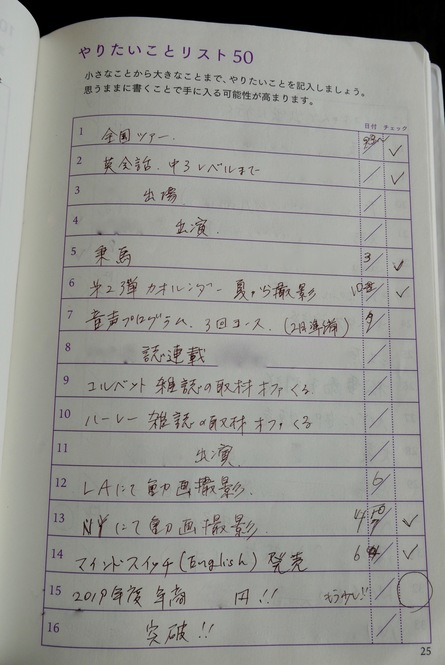 やりたいことリスト50
小さなことから大きなことまで、やりたいことを記入しましょう。
思うままに書くことで手に入る可能性が高まります。
日付 チェック
1 全国ツアー.
2 英会話. 中3レベルまで
3 出場
4 出演.
5 乗馬 3/
6 第23弾カオルンダー 夏から撮影
7 音声プログラム. 3回コース. (2月準備) 9/
8 誌連載
9 コルベット 雑誌の取材オファくる
10 ハーレー 雑誌の取材オファくる
11 出演.
12 LAにて動画撮影. 6/
13 NYにて動画撮影. 4
14 マインドスイッチ(English) 発売 6
15 2019年度 年商 円!!
16 突破!!
25